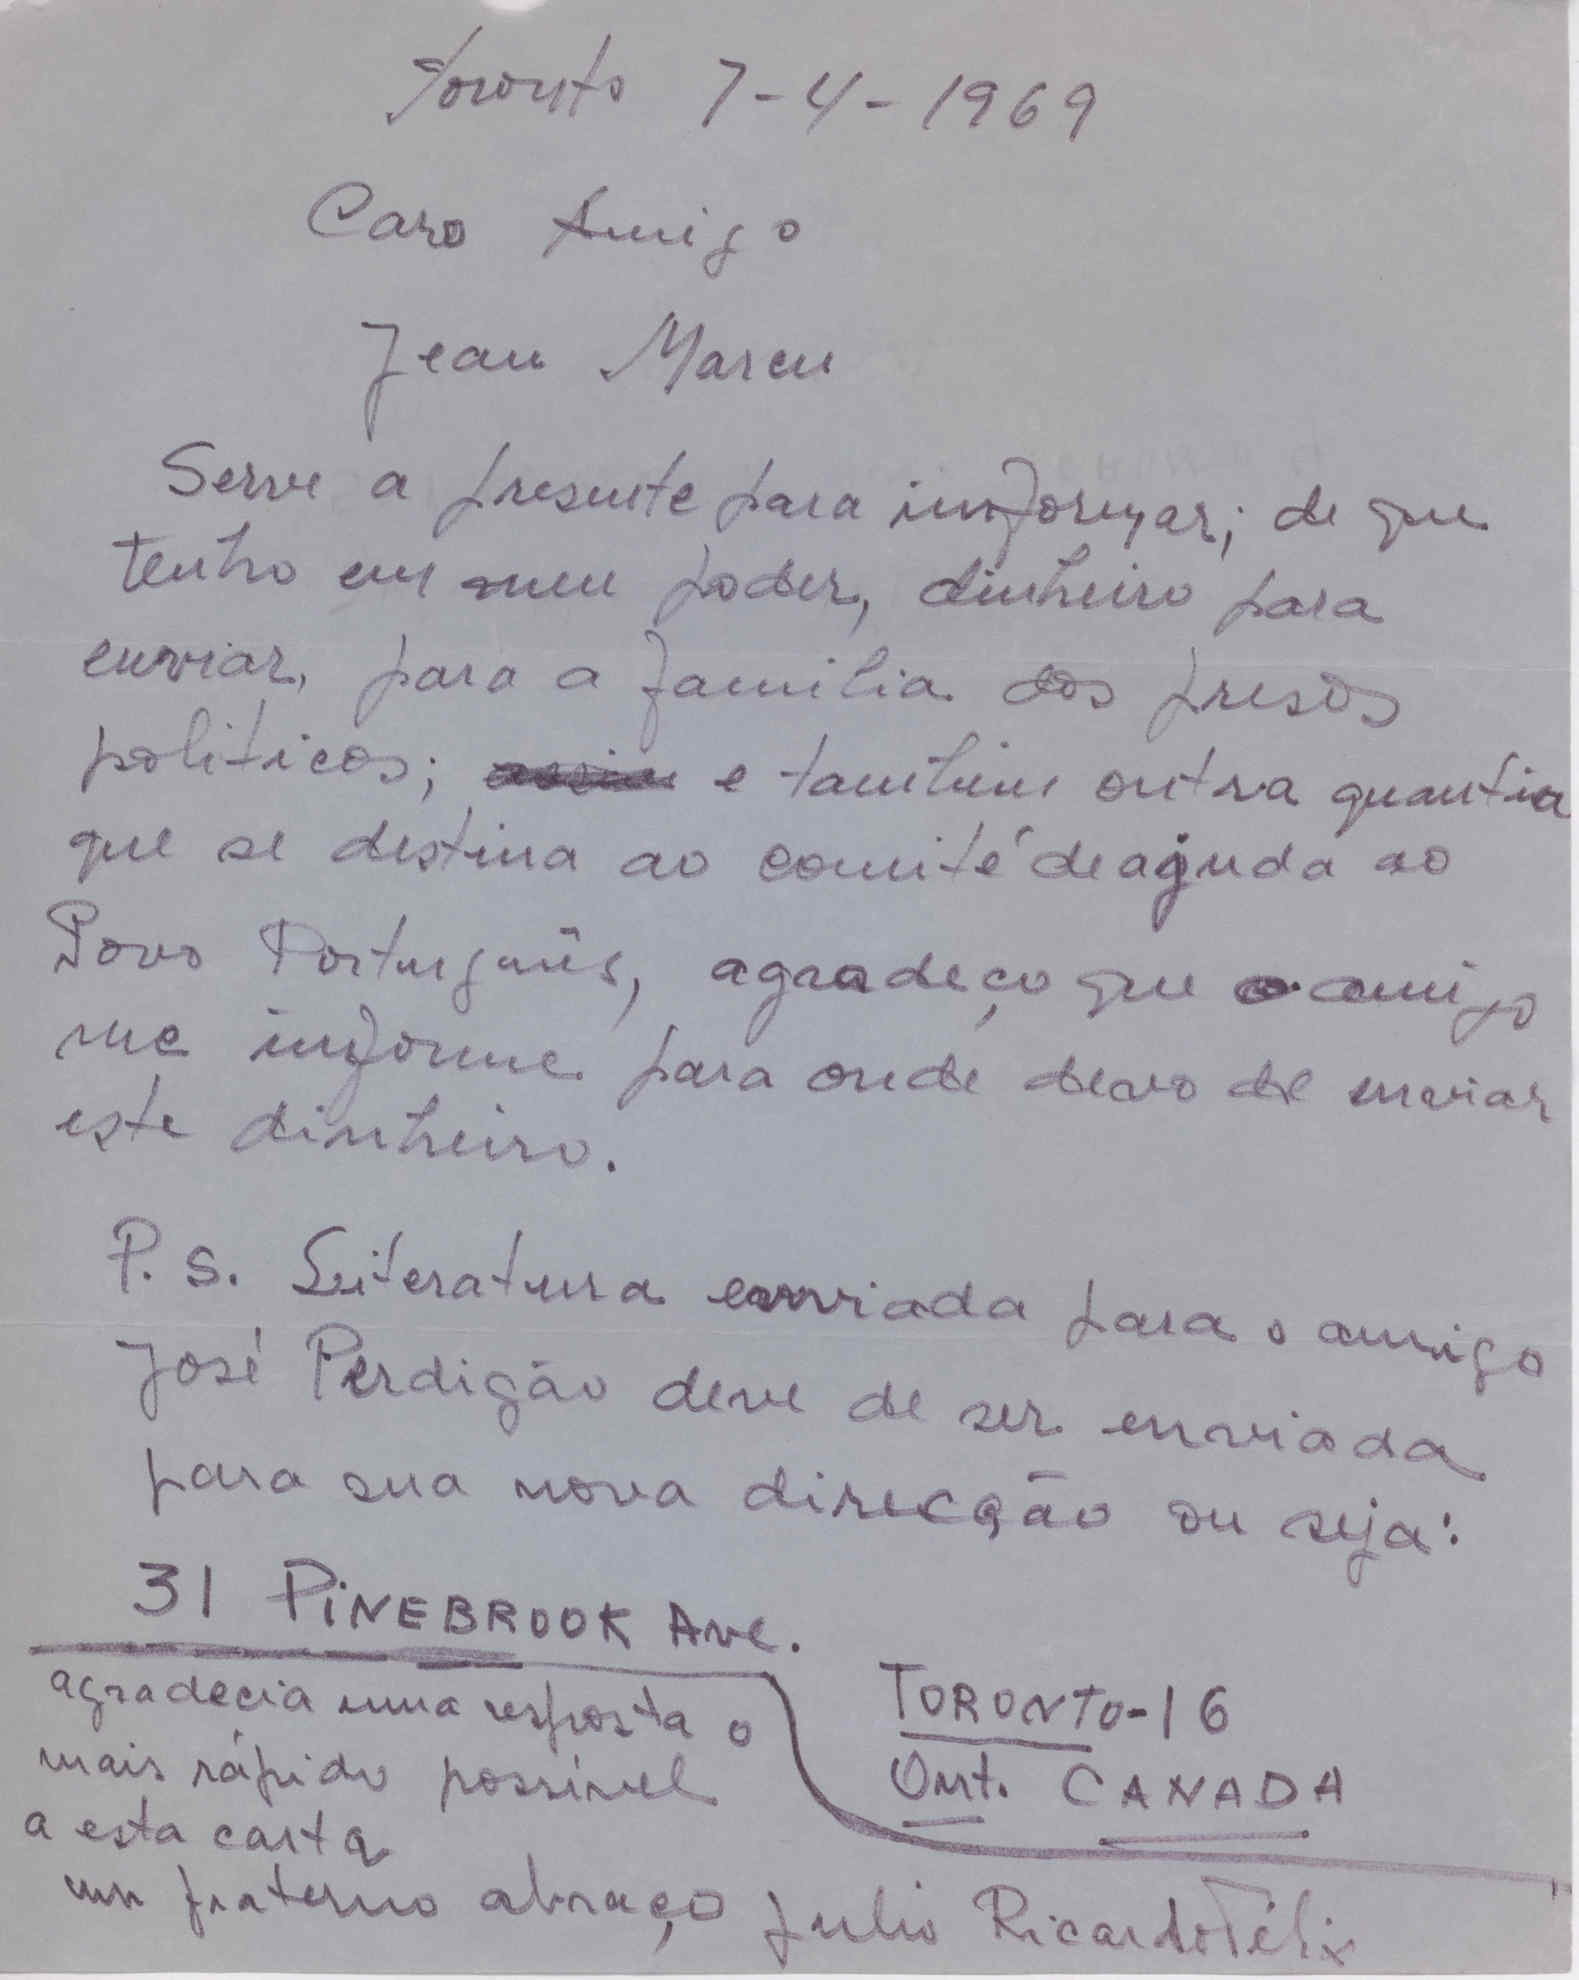 Toronto 7-4-1969
Caro Amigo
Jean Marcu
Serve a presente para informar; de que
tenho em meu poder, dinheiro para
enviar, para a familia dos presos
politicos; e também outra quantia
que se destina ao comité de ajuda ao
Povo Português, agradeço que o amigo
me informe para onde devo de enviar
este dinheiro.
P.S. Literatura enviada para o amigo
José Perdigão deve de ser enviada
para sua nova direcção ou seja:
31 PINEBROOK Ave.
TORONTO-16
Ont. CANADA
agradecia uma resposta o
mais rápido possível
a esta carta
um fraterno abraço Julio Ricardo Félix